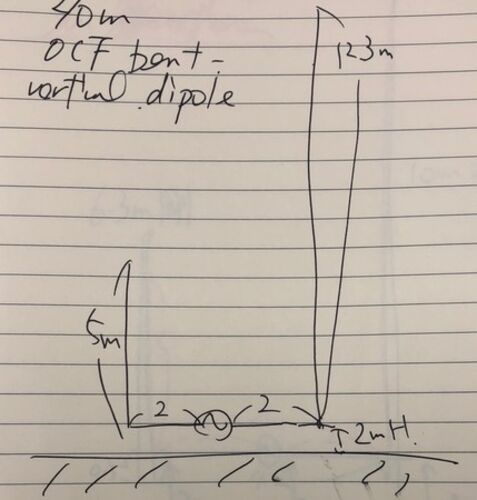 40m
OCF bent-
vertical dipole
12.3m
5m
2
2
2mH.